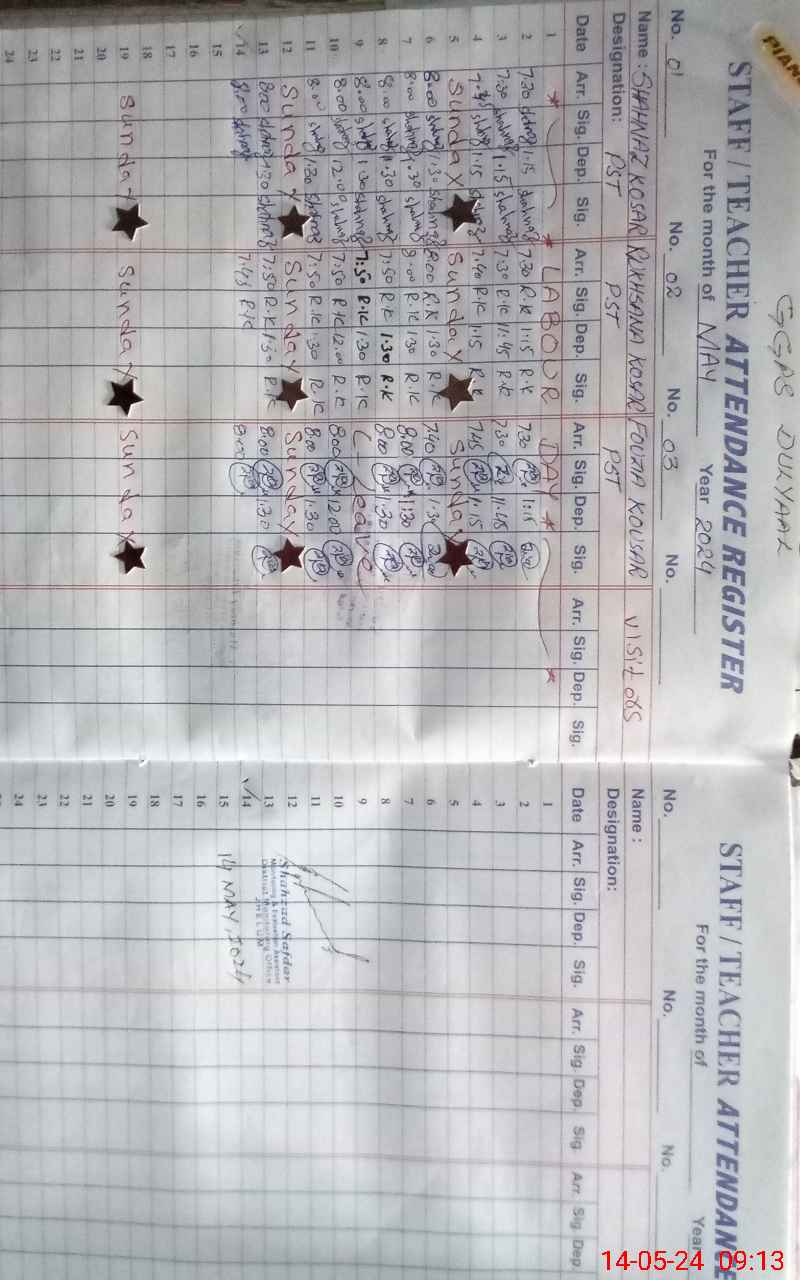 GGPS DULYAAL
STAFF / TEACHER ATTENDANCE REGISTER
For the month of MAY Year 2024
No. 01 No. 02 No. 03 No.
Name : SHAHNAZ KOSAR RUKHSANA KOSAR FOUZIA KOUSAR visitors
Designation: PST PST PST
Date Arr. Sig. Dep. Sig. Arr. Sig. Dep. Sig. Arr. Sig. Dep. Sig. Arr. Sig. Dep. Sig.
1 * LABOUR DAY * *
2 7:30 Shahnaz 1:15 Shahnaz 7:30 R.K 1:15 R.K 7:30 1:15
3 7:30 Shahnaz 11:45 Shahnaz 7:30 R.K 11:45 R.K 7:30 11:45
4 7:45 Shahnaz 1:15 Shahnaz 7:40 R.K 1:15 R.K 7:45 1:15
5 Sunday Sunday Sunday
6 8:00 Shahnaz 1:30 Shahnaz 8:00 R.K 1:30 R.K 7:40 1:30
7 8:00 Shahnaz 1:30 Shahnaz 8:00 R.K 1:30 R.K 8:00 1:30
8 8:00 Shahnaz 1:30 Shahnaz 7:50 R.K 1:30 R.K 8:00 1:30
9 8:00 Shahnaz 1:30 Shahnaz 7:50 R.K 1:30 R.K C - Leave
10 8:00 Shahnaz 12:00 Shahnaz 7:50 R.K 12:00 R.K 8:00 12:00
11 8:00 Shahnaz 1:30 Shahnaz 7:50 R.K 1:30 R.K 8:00 1:30
12 Sunday Sunday Sunday
13 8:00 Shahnaz 1:30 Shahnaz 7:50 R.K 1:30 R.K 8:00 1:30
14 8:00 Shahnaz 7:45 R.K 8:00
15
16
17
18
19 Sunday Sunday Sunday
20
21
22
23
24
STAFF / TEACHER ATTENDANCE
For the month of Year
No. No. No.
Name :
Designation:
Date Arr. Sig. Dep. Sig. Arr. Sig. Dep. Sig Arr. Sig Dep
1
2
3
4
5
6
7
8
9
10
11
12
13
14
15
16
17
18
19
20
21
22
23
24
Shahzad Safdar
Monitoring & Evaluation Assistant
District Monitoring Office
JHELUM
14 MAY, 2024
14-05-24 09:13